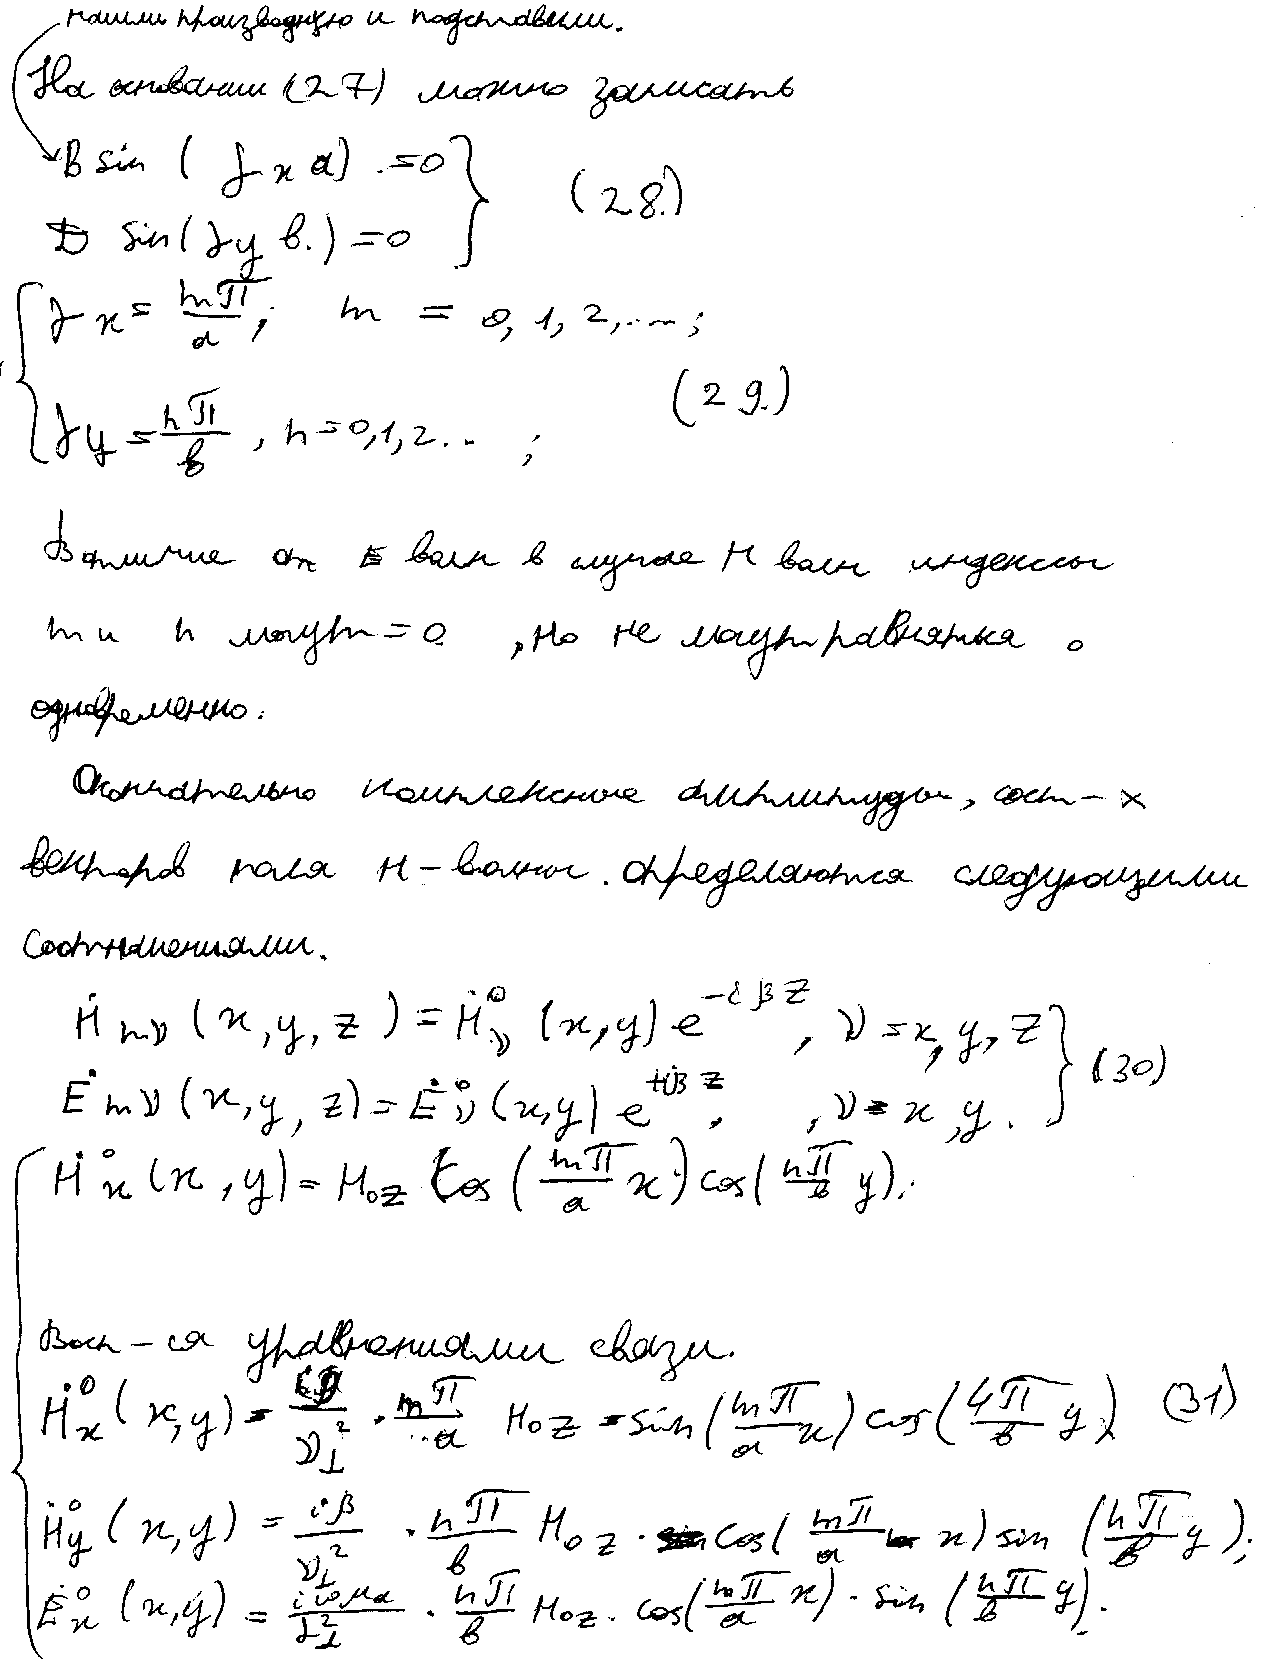 нашли производную и подставили.
На основании (27) можно записать
B sin (γx a) = 0
D sin(γy в.) = 0 } (28.)
γx = mπ/a; m = 0, 1, 2, ...;
γy = nπ/в, n = 0,1,2.. ; (29.)
В отличие от E волн в случае H волн индексы
m и n могут = 0, но не могут равняться 0
одновременно.
Окончательно комплексные амплитуды, сост-х
векторов поля H-волны. определяются следующими
соотношениями.
Ḣmν (x, y, z) = Ḣ⁰ν (x, y) e^-iβz, ν = x, y, z
Ėmν (x, y, z) = Ė⁰ν (x, y) e^+iβz, , ν = x, y. } (30)
Ḣ⁰x (x, y) = H0z cos (mπ/a x) cos (nπ/в y).
Восп-ся уравнениями связи.
Ḣ⁰x (x, y) = iβ/ν⊥² · mπ/a H0z = sin (mπ/a x) cos (nπ/в y) (31)
Ḣ⁰y (x, y) = iβ/ν⊥² · nπ/в H0z · cos( mπ/a x) sin (nπ/в y);
Ė⁰x (x, y) = iωμa/γ⊥² · nπ/в H0z · cos(mπ/a x) · sin (nπ/в y).